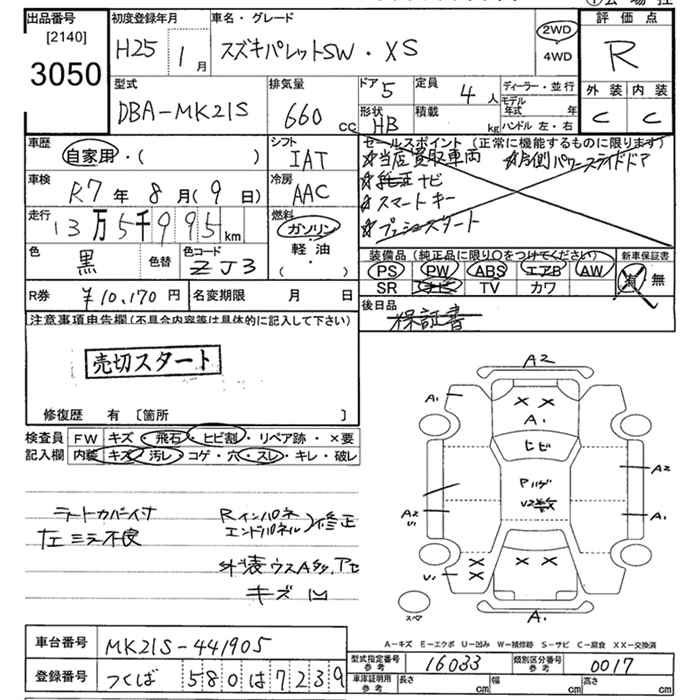 出品番号 初度登録年月 車名・グレード 評価点
[2140]
3050
H25 1月 スズキパレットSW・XS 2WD R
4WD
型式 排気量 ドア 5 定員 4人 ディーラー・並行 外装 内装
DBA-MK21S 660cc 形状 HB 積載 kg モデル年式 年 C C
ハンドル 左・右
車歴 シフト セールスポイント(正常に機能するものに限ります)
自家用・( ) IAT ☆当店買取車両 ☆右側パワースライドドア
車検 R7年8月(9日) 冷房 AAC ☆純正ナビ
☆スマートキー
走行 13万5千995km 燃料 ガソリン ☆プッシュスタート
軽油
色 黒 色替 色コード ZJ3 ・( )
装備品(純正品に限り○をつけてください) 新車保証書
PS PW ABS エアB AW 有・無
SR ナビ TV カワ
R券 ¥10,170円 名変期限 月 日 後日品
保証書
注意事項申告欄(不具合内容等は具体的に記入して下さい)
売切スタート
修復歴 有 [箇所 ]
検査員 FW キズ・飛石・ヒビ割・リペア跡・×要
記入欄 内装 キズ・汚レ・コゲ・穴・スレ・キレ・破レ
シートカバー付 Rインパネ
エンドパネル 修正
左ミラー不良
外装ウスAタタ,アセ
キズ凹
A2
A1 X X
A1
ヒビ
Pハゲ A2
A2
U1 A1
X X X
U1 X
スペア A1
A-キズ E-エクボ U-凹み W-補修跡 S-サビ C-腐食 XX-交換済
車台番号 MK21S-441905
型式指定番号 参考 16033 類別区分番号 参考 0017
登録番号 つくば 580 は 7239
車庫証明用 参考 長さ cm 幅 cm 高さ cm